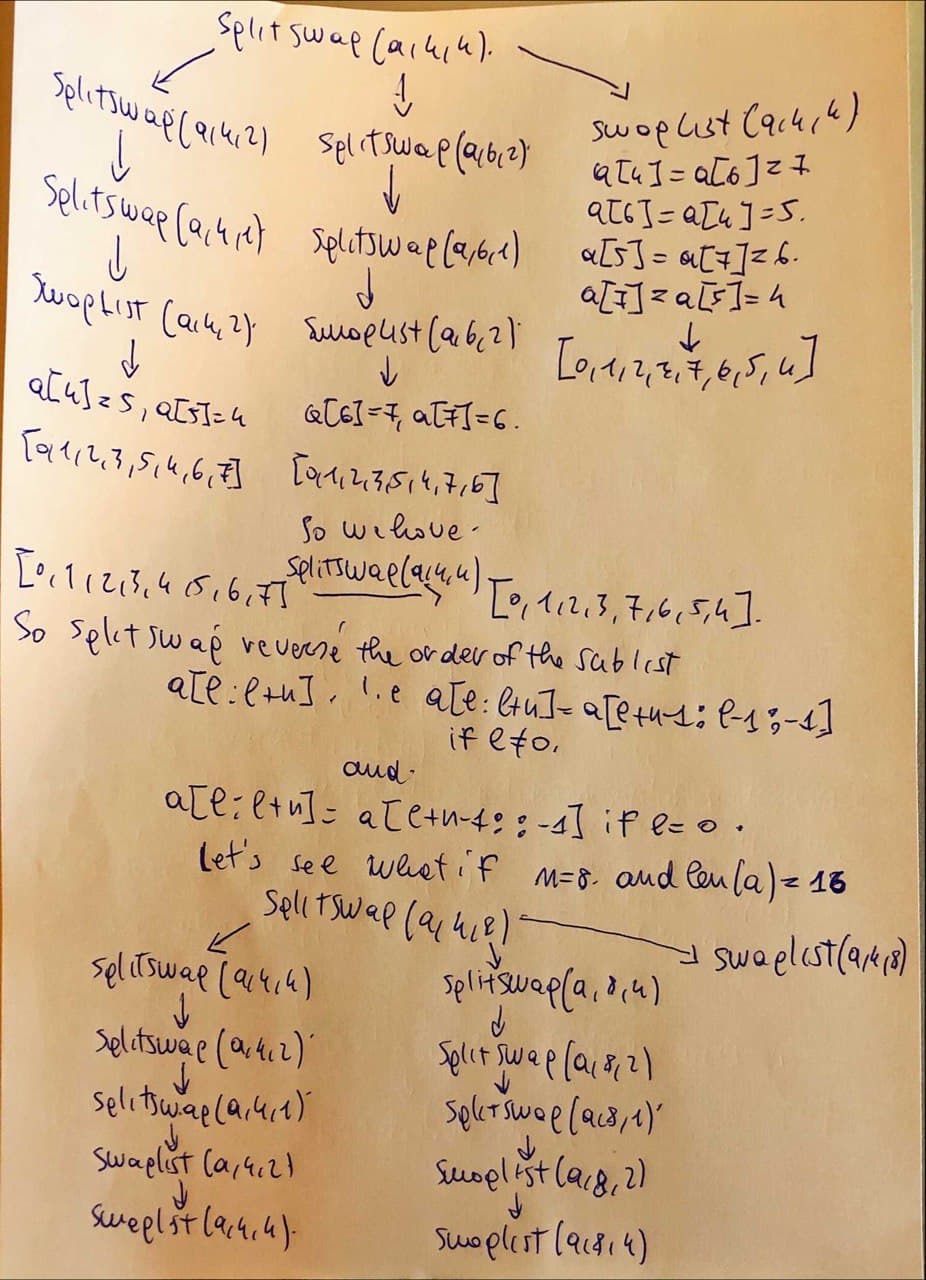 Splitswap(a,4,4).
Splitswap(a,4,2)
Splitswap(a,4,1)
SwapList (a,4,2).
a[4]=5, a[5]=4
[0,1,2,3,5,4,6,7]
Splitswap(a,6,2)
Splitswap(a,6,1)
SwapList(a,6,2)
a[6]=7, a[7]=6.
[0,1,2,3,5,4,7,6]
swapList (a,4,4)
a[4]=a[6]=7
a[6]=a[4]=5.
a[5]=a[7]=6.
a[7]=a[5]=4
[0,1,2,3,7,6,5,4]
So we have.
[0,1,2,3,4,5,6,7] Splitswap(a,4,4) [0,1,2,3,7,6,5,4].
So splitswap reverse the order of the sublist
a[l:l+n], i.e a[l:l+n]=a[l+n-1:l-1:-1]
if l≠0.
and.
a[l:l+n]= a[l+n-1::-1] if l=0.
Let's see what if n=8. and len(a)=16
Splitswap(a,4,8)
Splitswap(a,4,4)
Splitswap(a,4,2)
Splitswap(a,4,1)
Swaplist (a,4,2)
Swaplist(a,4,4).
Splitswap(a,8,4)
Splitswap(a,8,2)
Splitswap(a,8,1)
Swaplist(a,8,2)
Swaplist(a,8,4)
swaplist(a,4,8)